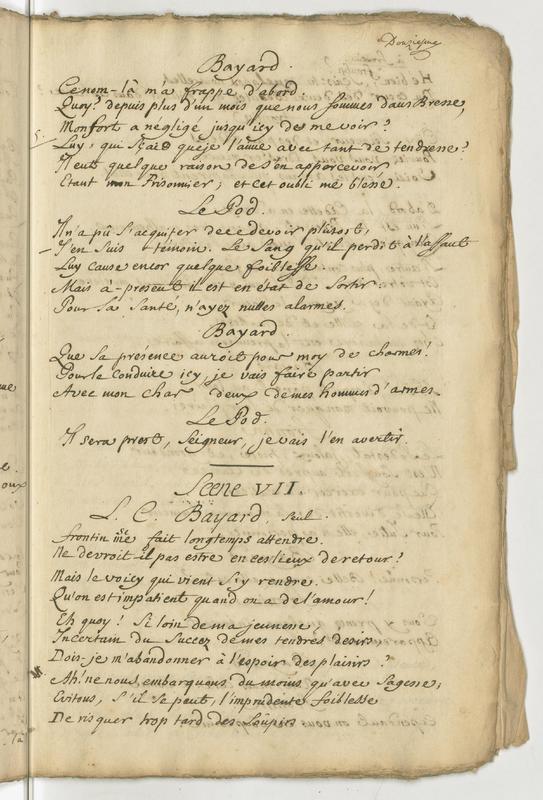 Bayard.
Ce nom-là m'a frappé d'abord.
Quoy? depuis plus d'un mois que nous sommes dans Bresse,
Monfort a négligé jusqu'icy de me voir?
Luy, qui sçait que je l'aime avec tant de tendresse?
Il eut quelque raison de s'en appercevoir
Etant mon Prisonnier; et cet oubli me blesse.
Le God.
Il n'a pû s'acquiter de ce devoir plûtost,
J'en suis témoin. Le Sang qu'il perdit à l'assaut
Luy cause encor quelque foiblesse.
Mais à-present il est en état de Sortir.
Pour sa Santé, n'ayez nulles alarmes.
Bayard.
Que sa présence auroit pour moy de charmes!
Pour le conduire icy, je vais faire partir
Avec mon char deux de mes hommes d'armes.
Le God.
Il sera prest, Seigneur, je vais l'en avertir.
Scene VII.
L. C. Bayard, seul.
frontin me fait longtemps attendre.
Ne devroit il pas estre en ces lieux de retour?
Mais le voicy qui vient s'y rendre.
Qu'on est impatient quand on a de l'amour!
Eh quoy! Si loin de ma jeunesse,
Incertain du Succez de mes tendres desirs
Dois-je m'abandonner à l'espoir des plaisirs?
Ah! ne nous embarquons du moins qu'avec Sagesse;
Evitons, s'il se peut, l'imprudente foiblesse
De risquer trop tard des Soupirs